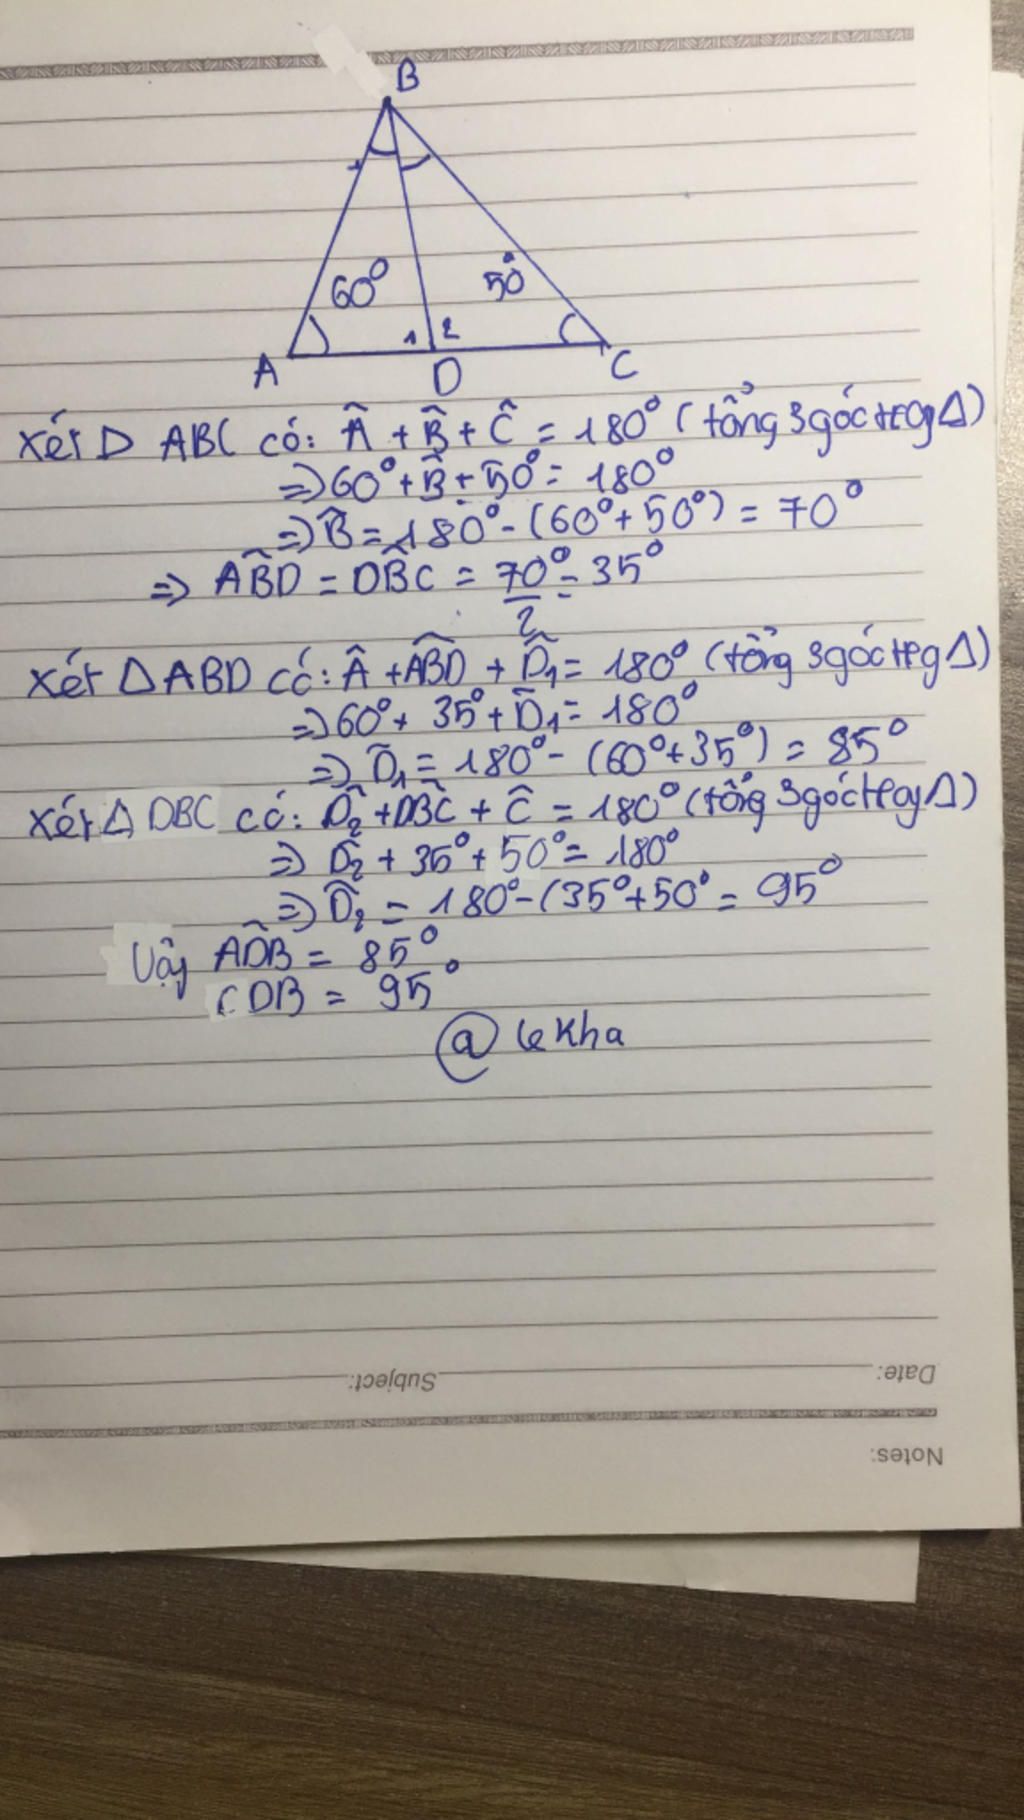 B
60° 50°
1 2
A D C
Xét D ABC có: Â + B̂ + Ĉ = 180° (tổng 3góc trog Δ)
=> 60° + B̂ + 50° = 180°
=> B̂ = 180° - (60° + 50°) = 70°
=> ABD̂ = DBĈ = 70°/2 = 35°
Xét Δ ABD có: Â + ABD̂ + D̂₁ = 180° (tổng 3góc trog Δ)
=> 60° + 35° + D̂₁ = 180°
=> D̂₁ = 180° - (60° + 35°) = 85°
Xét Δ DBC có: D̂₂ + DBĈ + Ĉ = 180° (tổng 3góc trog Δ)
=> D̂₂ + 35° + 50° = 180°
=> D̂₂ = 180° - (35° + 50° = 95°
Vậy ADB̂ = 85°
CDB = 95°
@ lekha
Date:
Subject:
Notes: